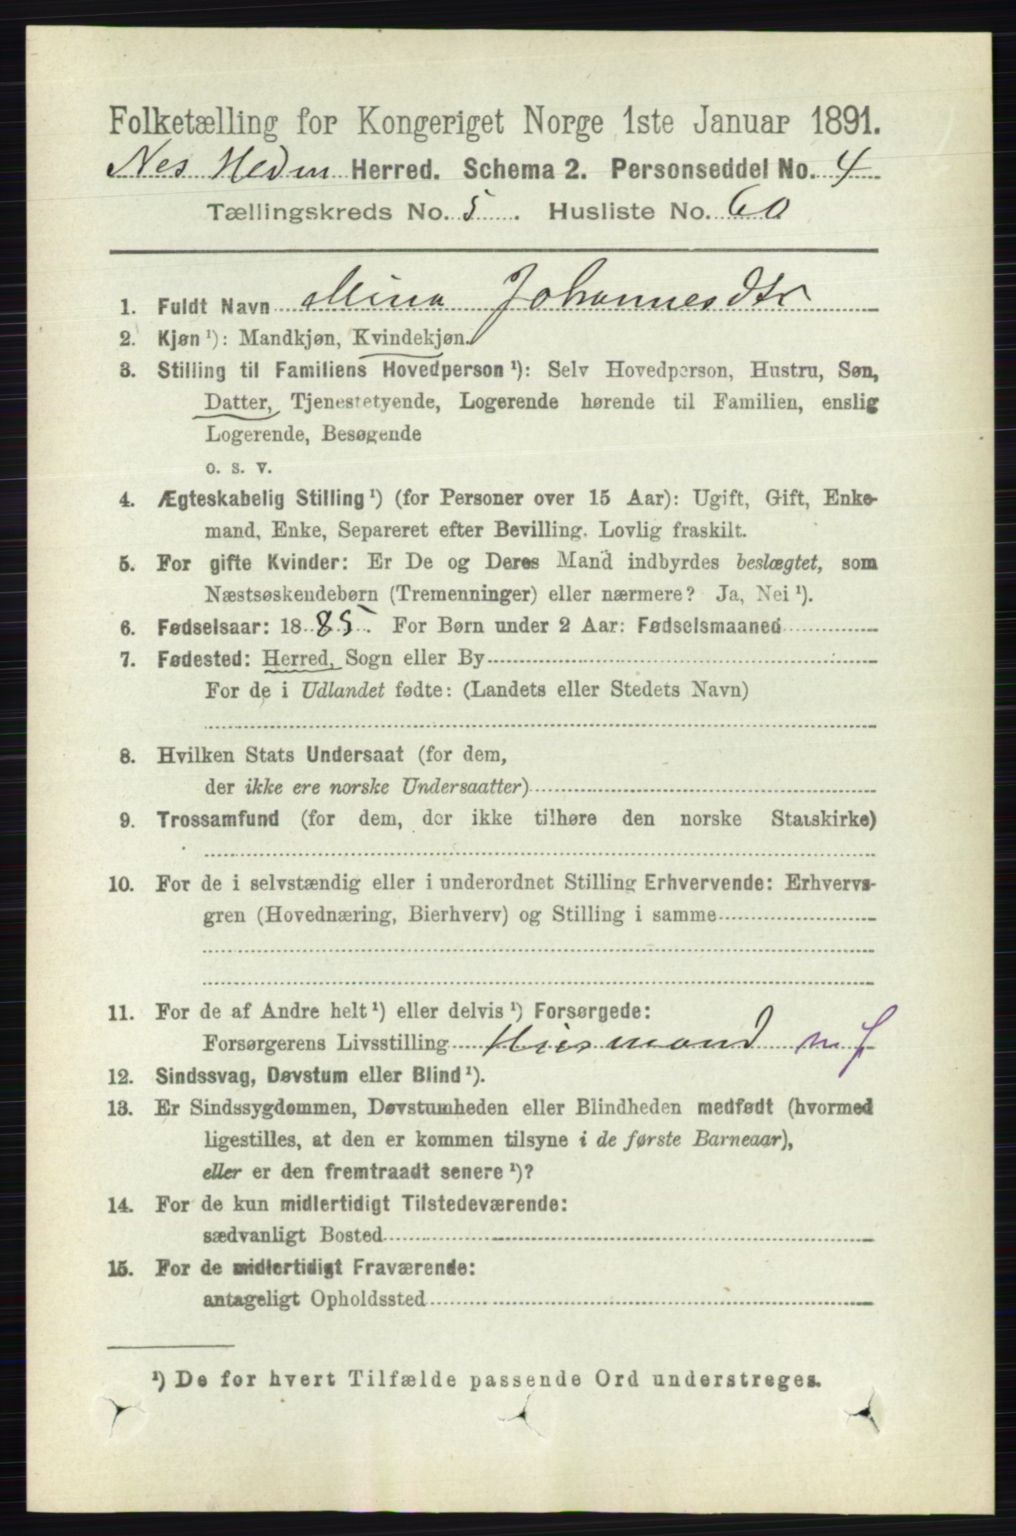 Folketælling for Kongeriget Norge 1ste Januar 1891.
Nes Hedm Herred. Schema 2. Personseddel No. 4
Tællingskreds No. 5. Husliste No. 60
1. Fuldt Navn Mina Johannesdtr
2. Kjøn ¹): Mandkjøn, Kvindekjøn.
3. Stilling til Familiens Hovedperson ¹): Selv Hovedperson, Hustru, Søn,
Datter, Tjenestetyende, Logerende hørende til Familien, enslig
Logerende, Besøgende
o. s. v.
4. Ægteskabelig Stilling ¹) (for Personer over 15 Aar): Ugift, Gift, Enke-
mand, Enke, Separeret efter Bevilling. Lovlig fraskilt.
5. For gifte Kvinder: Er De og Deres Mand indbyrdes beslægtet, som
Næstsøskendebørn (Tremenninger) eller nærmere? Ja, Nei ¹).
6. Fødselsaar: 1885. For Børn under 2 Aar: Fødselsmaaned
7. Fødested: Herred, Sogn eller By
For de i Udlandet fødte: (Landets eller Stedets Navn)
8. Hvilken Stats Undersaat (for dem,
der ikke ere norske Undersaatter)
9. Trossamfund (for dem, der ikke tilhøre den norske Statskirke)
10. For de i selvstændig eller i underordnet Stilling Erhvervende: Erhvervs-
gren (Hovednæring, Bierhverv) og Stilling i samme
11. For de af Andre helt ¹) eller delvis ¹) Forsørgede:
Forsørgerens Livsstilling Husmand m f
12. Sindssvag, Døvstum eller Blind ¹).
13. Er Sindssygdommen, Døvstumheden eller Blindheden medfødt (hvormed
ligestilles, at den er kommen tilsyne i de første Barneaar),
eller er den fremtraadt senere ¹)?
14. For de kun midlertidigt Tilstedeværende:
sædvanligt Bosted
15. For de midlertidigt Fraværende:
antageligt Opholdssted
¹) De for hvert Tilfælde passende Ord understreges.